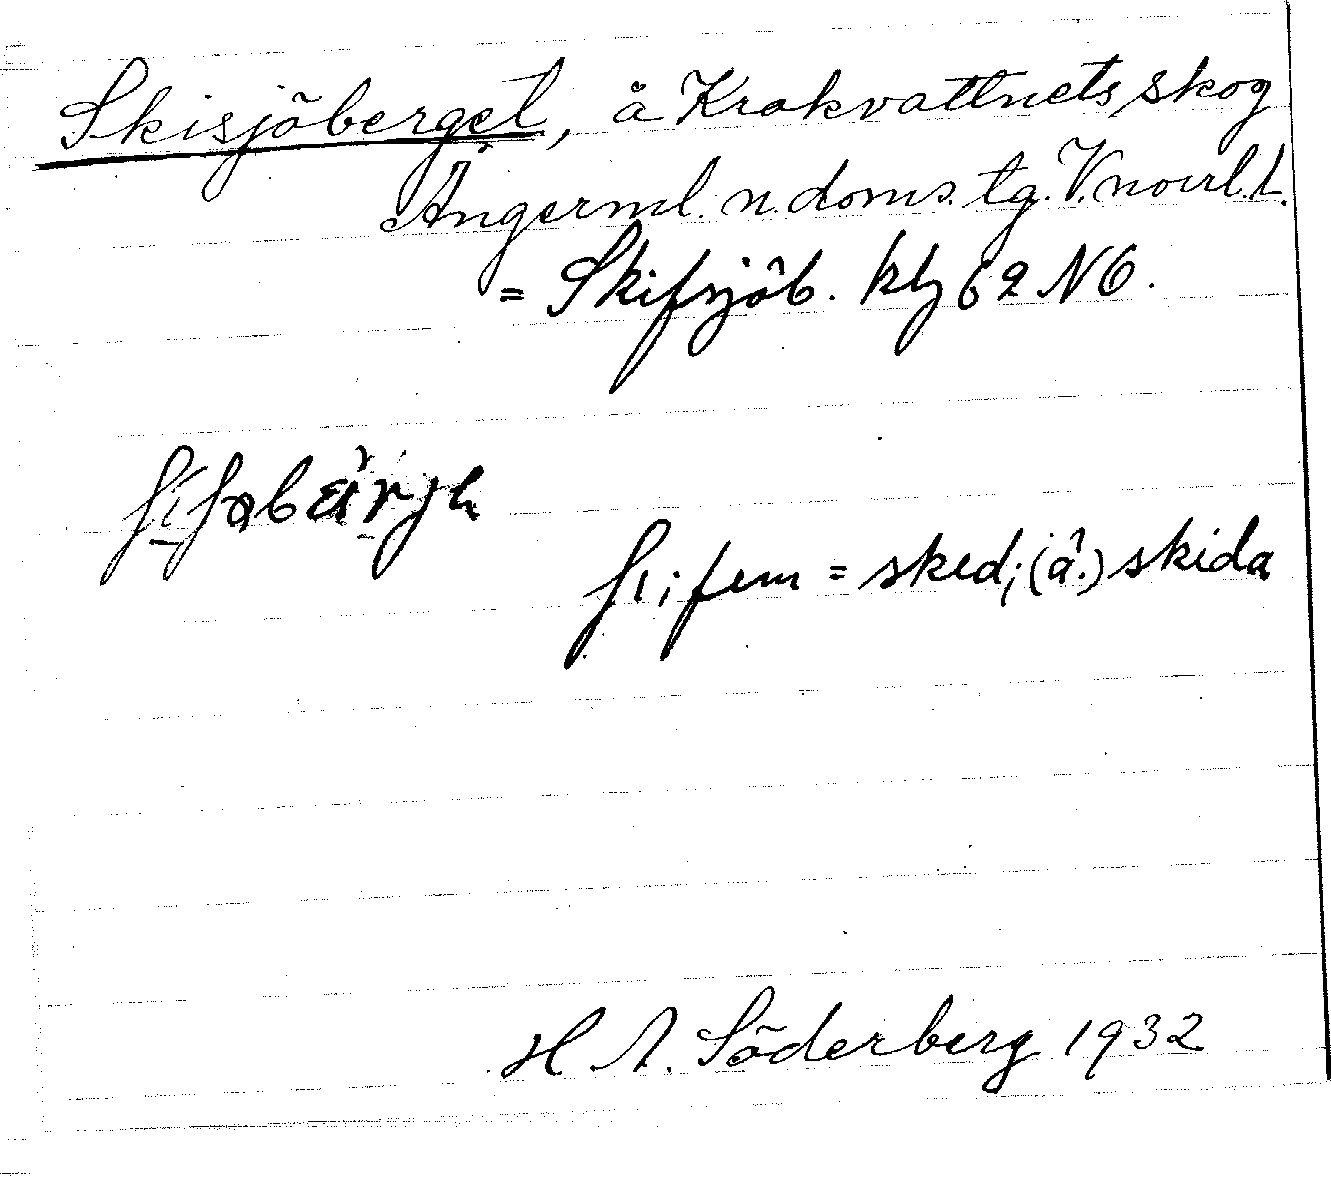 Skisjöberget, å Krokvattnets skog
Ångerml. n. doms. tg. V.norrl. l.
= Skifsjöb. ktg 62 NO.
ʃiʃøbärjə
ʃi, fem = sked; (å.) skida
H. A. Söderberg 1932